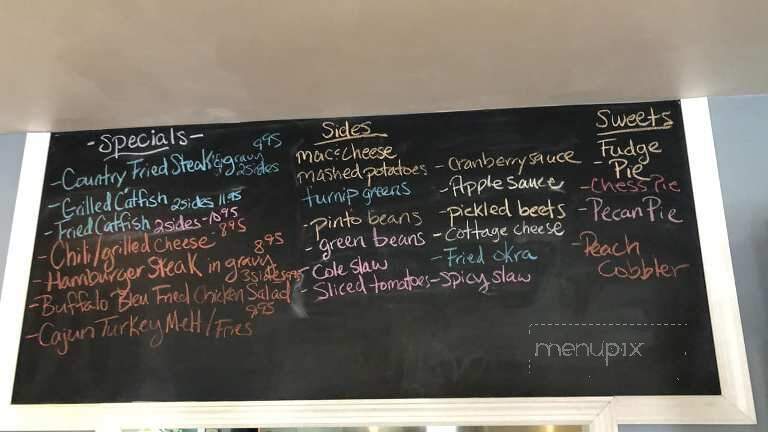 -Specials-
-Country Fried Steak & gravy 9.95 2 sides
-Grilled Catfish 2 sides 11.95
-Fried Catfish 2 sides-10.95
-Chili/grilled cheese 8.95
-Hamburger Steak in gravy 8.95
-Buffalo Bleu Fried Chicken Salad
-Cajun Turkey Melt/Fries 9.95
Sides
mac&cheese
mashed potatoes
turnip greens
-pinto beans
-green beans
-Cole slaw
-Sliced tomatoes
-Cranberry sauce
-Apple sauce
-pickled beets
-Cottage cheese
-Fried okra
-Spicy slaw
Sweets
Fudge
-Pie
-Chess Pie
-Pecan Pie
-Peach
Cobbler
menupix